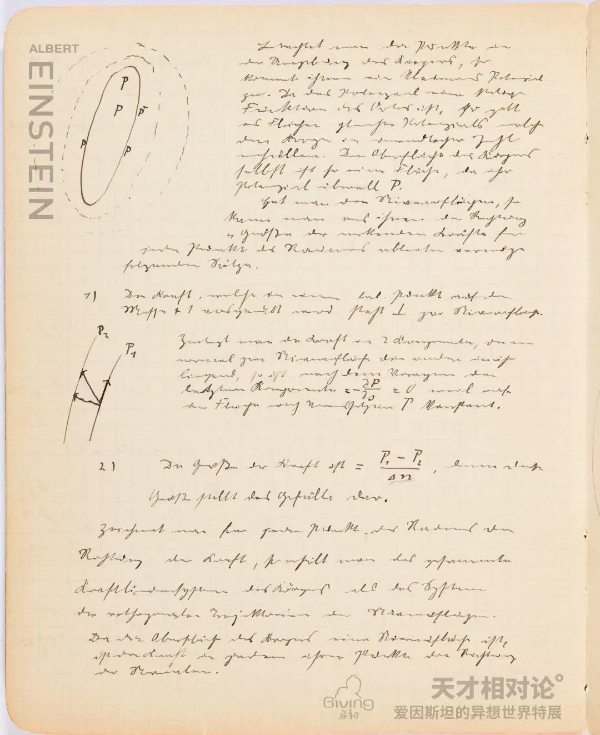 ALBERT
EINSTEIN
Betrachtet man die Punkte in
der Umgebung des Körpers, so
kommt ihnen ein Potential
zu. Da das Potential eine
Funktion des Ortes ist, so gibt
es Flächen gleichen Potentials, welche
den Körper in unendlicher Zahl
umhüllen. Die Oberfläche des Körpers
selbst ist so eine Fläche, da ihr
Potential überall P.
Hat man den Niveauflächen, so
kann man aus ihnen die Richtung
u Größe der wirkenden Kräfte für
jeden Punkt des Raumes ableiten vermöge
folgender Sätze.
P
P
P
P
P
1) Die Kraft, welche in einem bel. Punkt auf die
Masse + 1 ausgeübt wird steht ⊥ zur Niveaufläche.
P₂
P₁
Zerlegt man die Kraft in 2 Komponenten, die eine
normal zur Niveaufläche die andere
liegend, so ist nach dem Vorigen die
letztere Komponente = ∂P/∂s = 0 weil
die Fläche P konstant.
2) Die Größe der Kraft ist = P₁ − P₂ / Δn, denn diese
Größe stellt das Gefälle dar.
Zeichnet man für jeden Punkt des Raumes die
Richtung der Kraft, so erhält man das gesammte
Kraftliniensystem des Körpers als das System
der orthogonalen Trajektorien der Niveauflächen.
Da die Oberfläche des Körpers eine Niveaufläche ist,
ist die Kraft in jedem ihrer Punkte die Richtung
der Normalen.
Giving
天才相对论°
爱因斯坦的异想世界特展